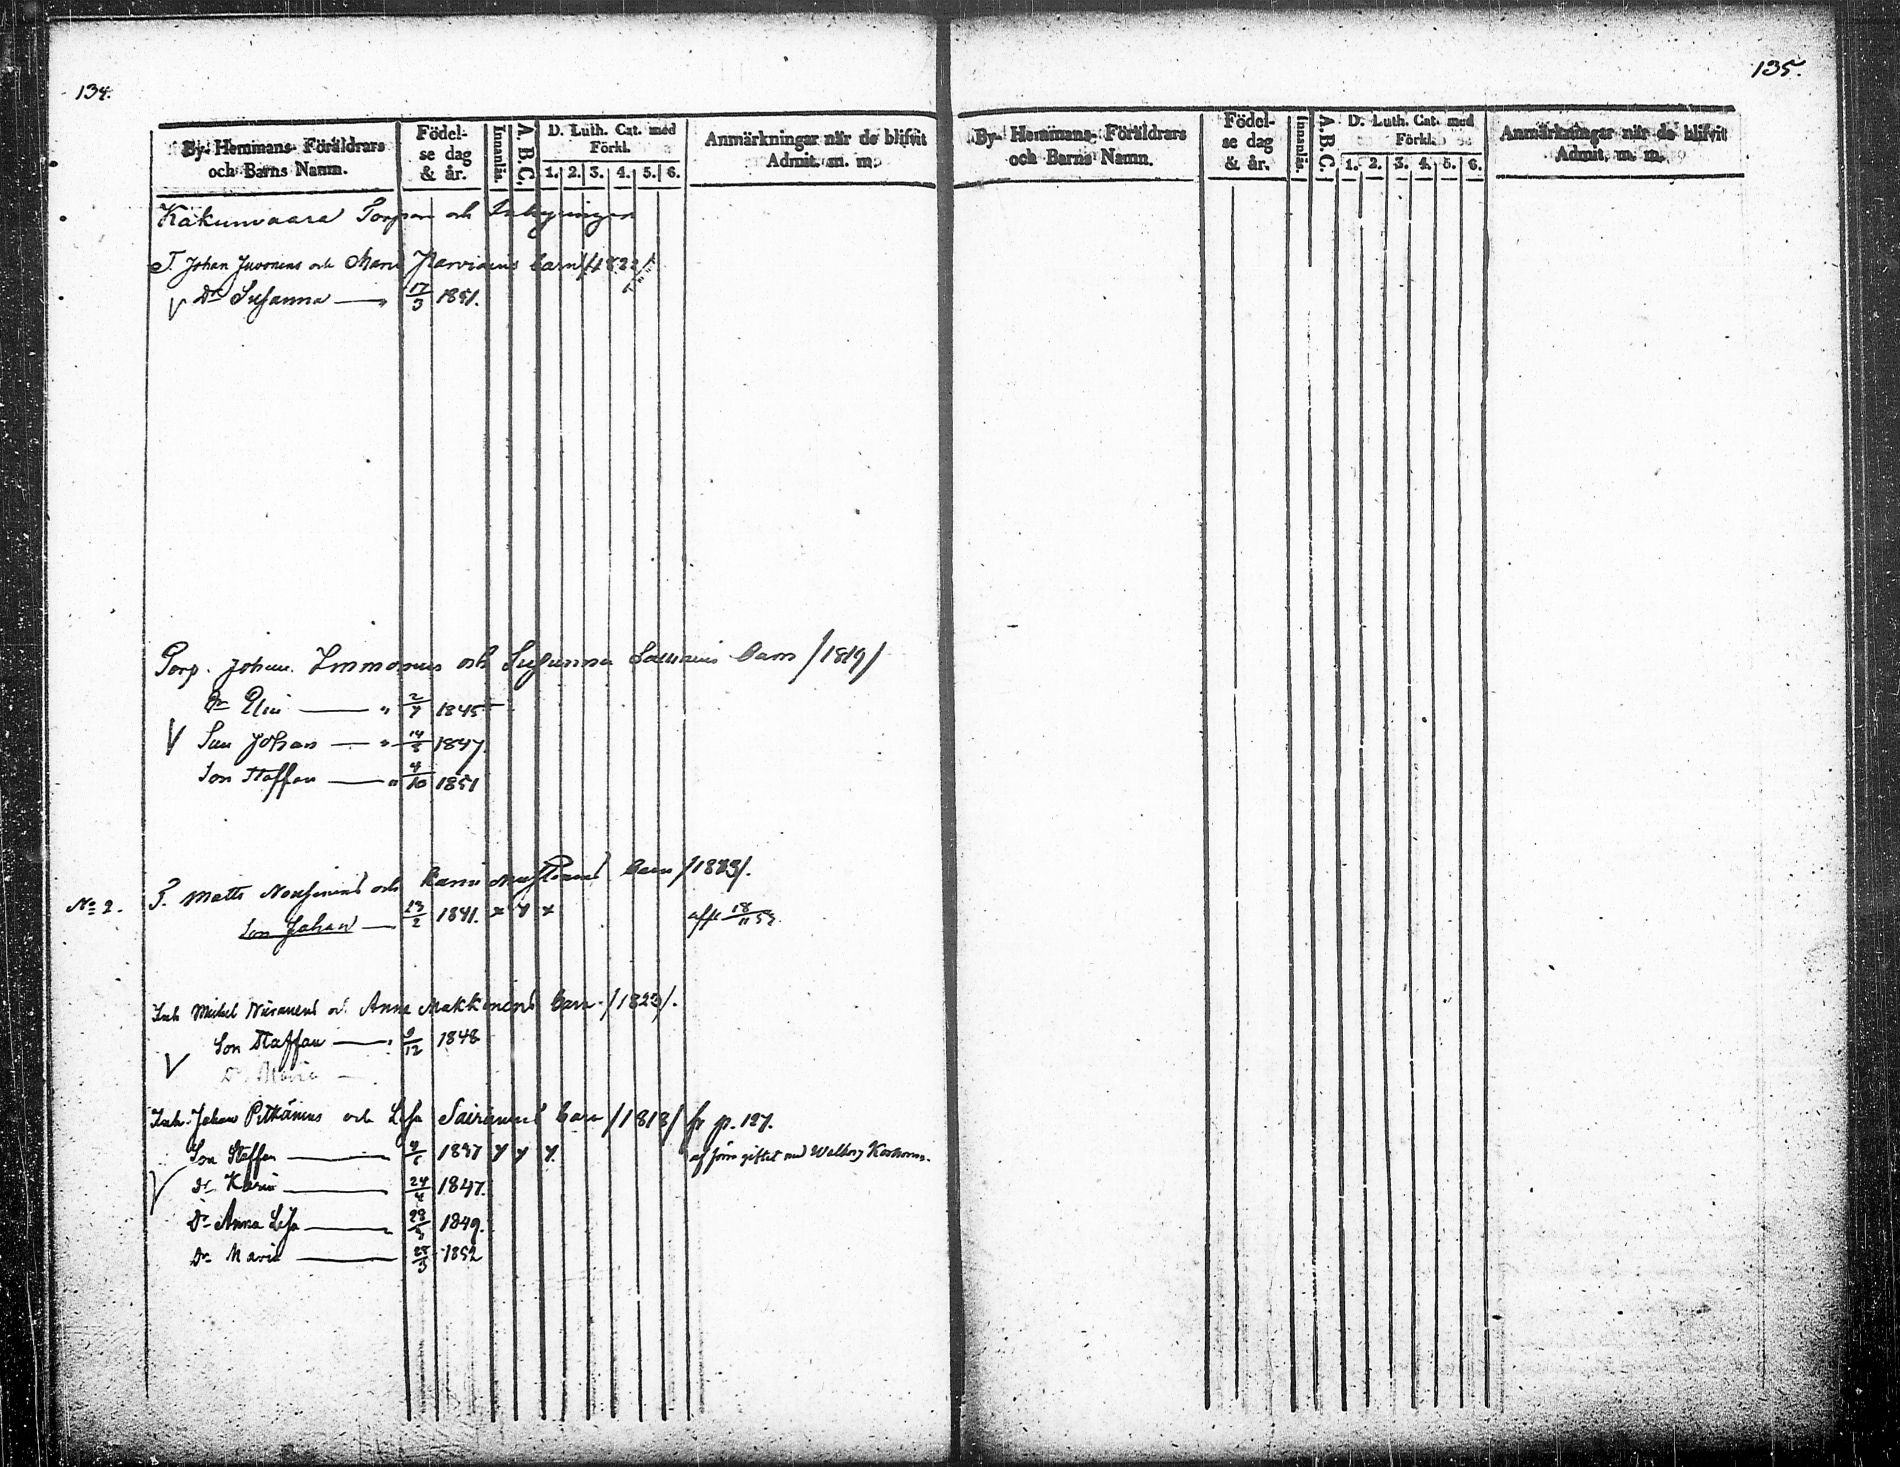 134.
By- Hemmans- Föräldrars och Barns Namn.
Födel- se dag & år.
Innanläs.
A. B. C.
D. Luth. Cat. med Förkl.
1. 2. 3. 4. 5. 6.
Anmärkningar när de blifvit Admit. m. m.
Kakunvaara Torpare och Inhysingar
T. Johan Juvonens och Maria Parviains barn /1822/
V Dr Susanna — " 17/3 1851.
Torp. Johan Immonens och Susanna barn /1819/
Dr Elin — " 2/7 1845
V Son Johan — " 14/5 1847
Son Staffan — " 4/10 1851
No 2. T. Matts och Karin barn /1823/.
Son Johan — 23/2 1841. x x x 18/11 53
Inh. Michel och Anna Makkonens barn /1823/.
V Son Staffan — " 9/12 1848
Dr Maria —
Inh. Johan Pitkänens och Lisa Sairanens barn /1818/ fr p. 127.
Son Staffan — 1837 x x x giftet med Walborg
V Dr Karin — 24/4 1847.
Dr Anna Lisa — 23/5 1849.
Dr Maria — 25/3 1852
135.
By- Hemmans- Föräldrars och Barns Namn.
Födel- se dag & år.
Innanläs.
A. B. C.
D. Luth. Cat. med Förkl.
1. 2. 3. 4. 5. 6.
Anmärkningar när de blifvit Admit. m. m.